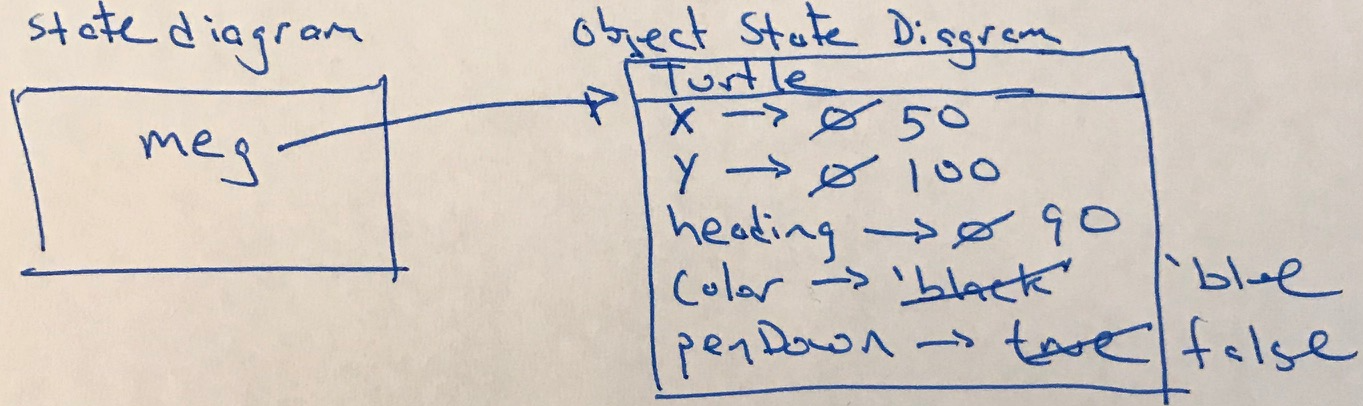 state diagram
Object State Diagram
Turtle
meg
x → 0 50
y → 0 100
heading → 0 90
color → 'black' 'blue
penDown → true false